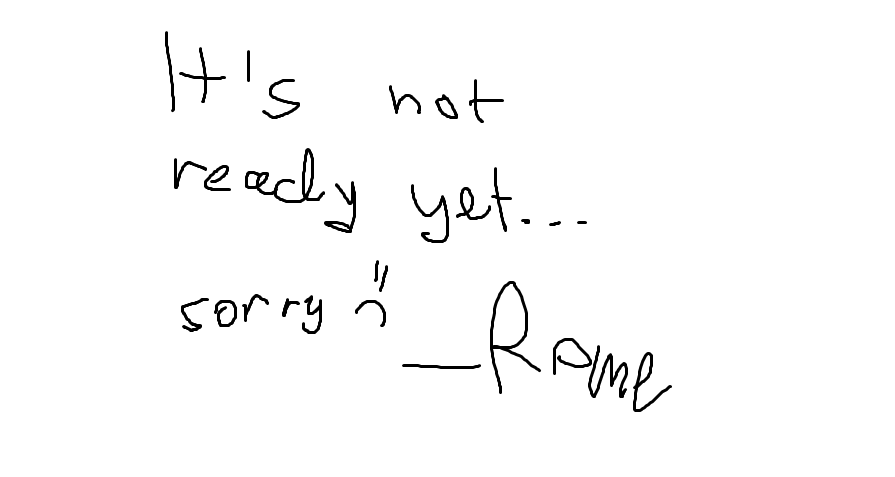 It's not
ready yet...
sorry